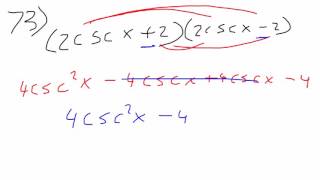 73)
(2cscx+2)(2cscx-2)
4csc²x - 4cscx+4cscx - 4
4csc²x - 4